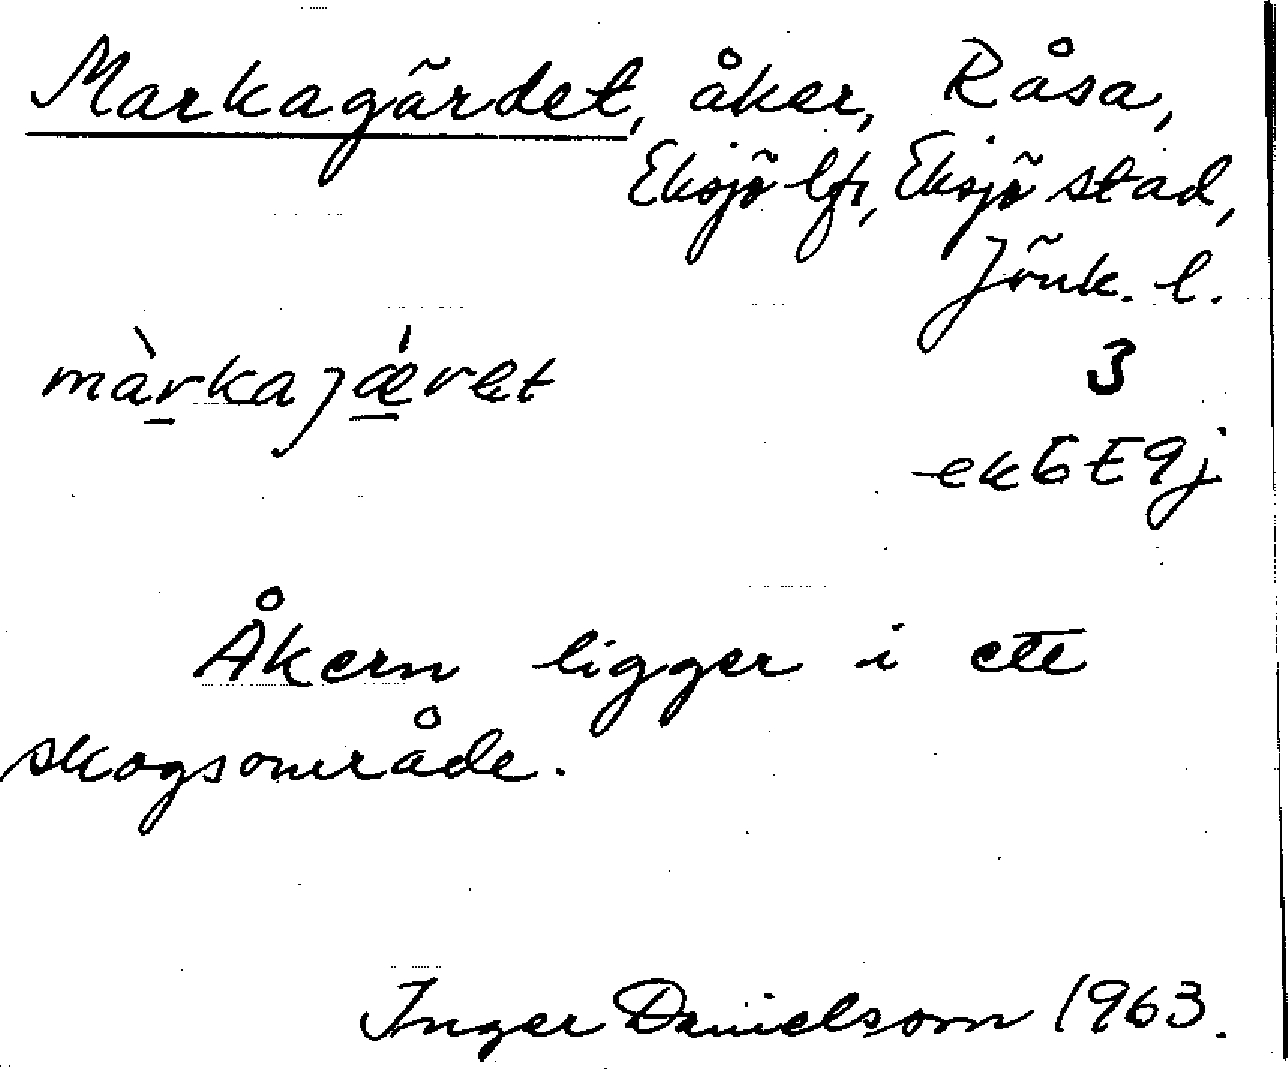 Markagärdet, åker, Råsa,
Eksjö lfs, Eksjö stad,
Jönk. l.
màrkajǽret
3
ek6E9j
Åkern ligger i ett
skogsområde.
Inger Danielsson 1963.